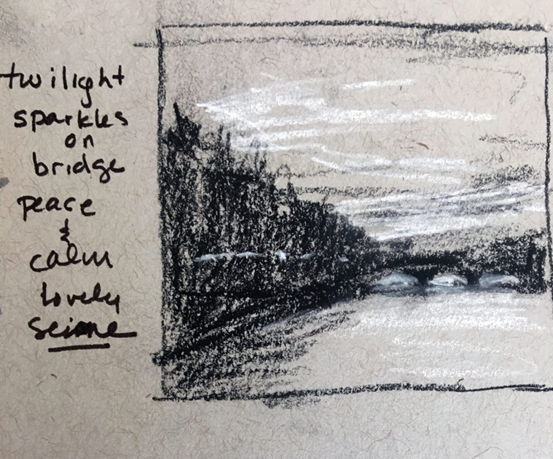 twilight
sparkles
on
bridge
peace
&
calm
lovely
Seine